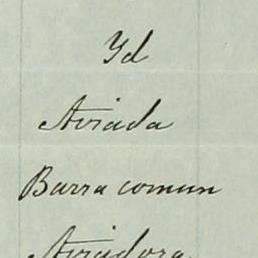 Yd
Aviada
Barra comun
Aviadora